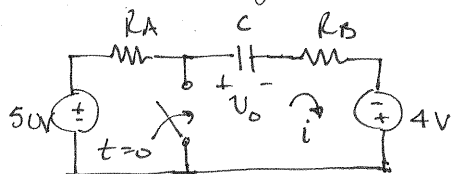 RA
C
RB
+ -
50V
+
-
t=0
V₀
i
-
+
4V